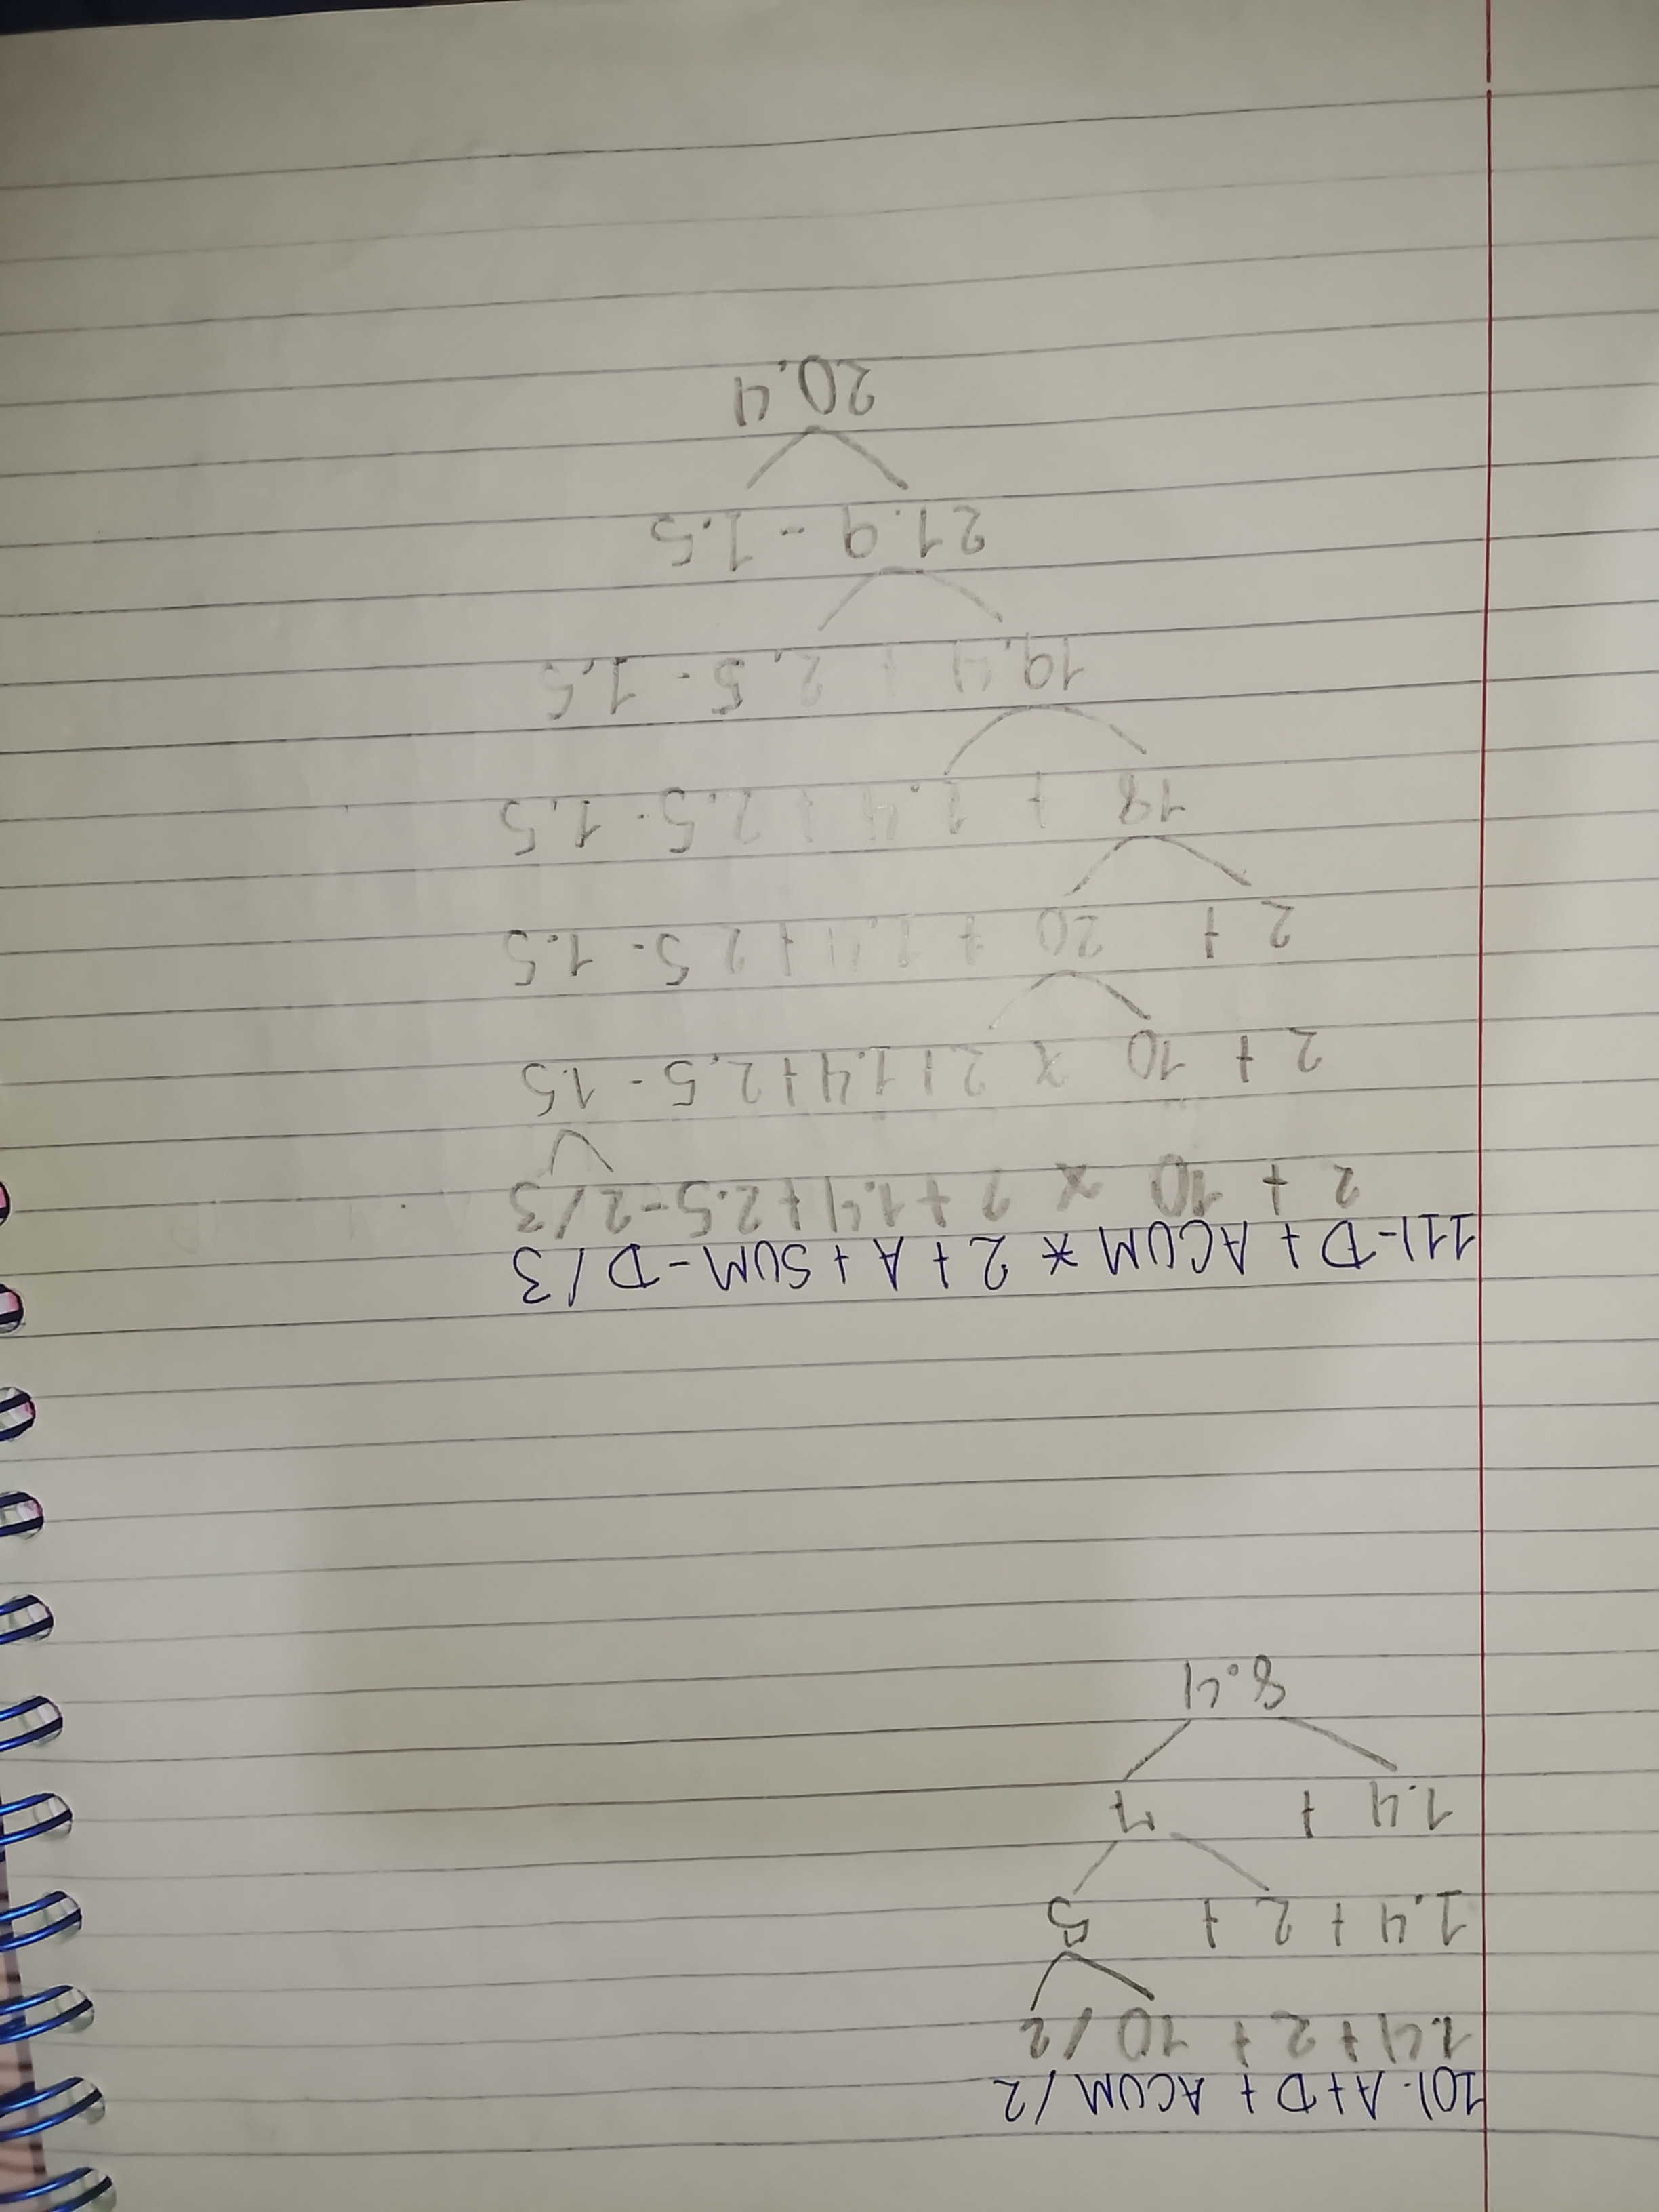 10)- A+D + ACUM / 2
1.4 + 2 + 10 / 2
1.4 + 2 + 5
1.4 + 7
8.4
11)- D + ACUM * 2 + A + SUM - D / 3
2 + 10 x 2 + 1.4 + 2.5 - 2 / 3
2 + 10 x 2 + 1.4 + 2.5 - 1.5
2 + 20 + 1.4 + 2.5 - 1.5
18 + 1.4 + 2.5 - 1.5
19.4 + 2.5 - 1.5
21.9 - 1.5
20.4